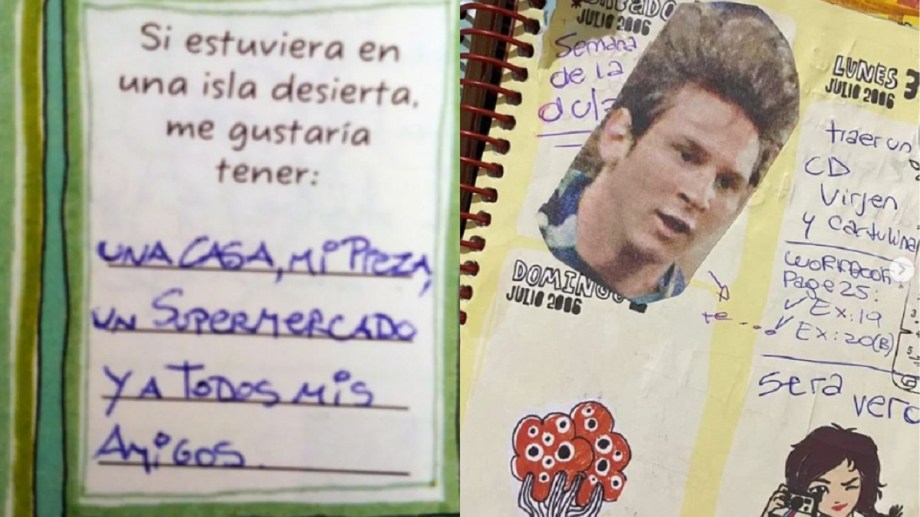 Si estuviera en
una isla desierta,
me gustaría
tener:
UNA CASA, Mi PiEZA,
UN SUPERMERCADO
Y A TODOS MiS
AMiGOS
JULIO 2006
Semana
de la
dulz
DOMINGO
JULIO 2006
te...
LUNES 3
JULIO 2006
traer un
CD
Virjen
y cartulina
Page 25:
Ex: 19
Ex: 20(B)
sera verd